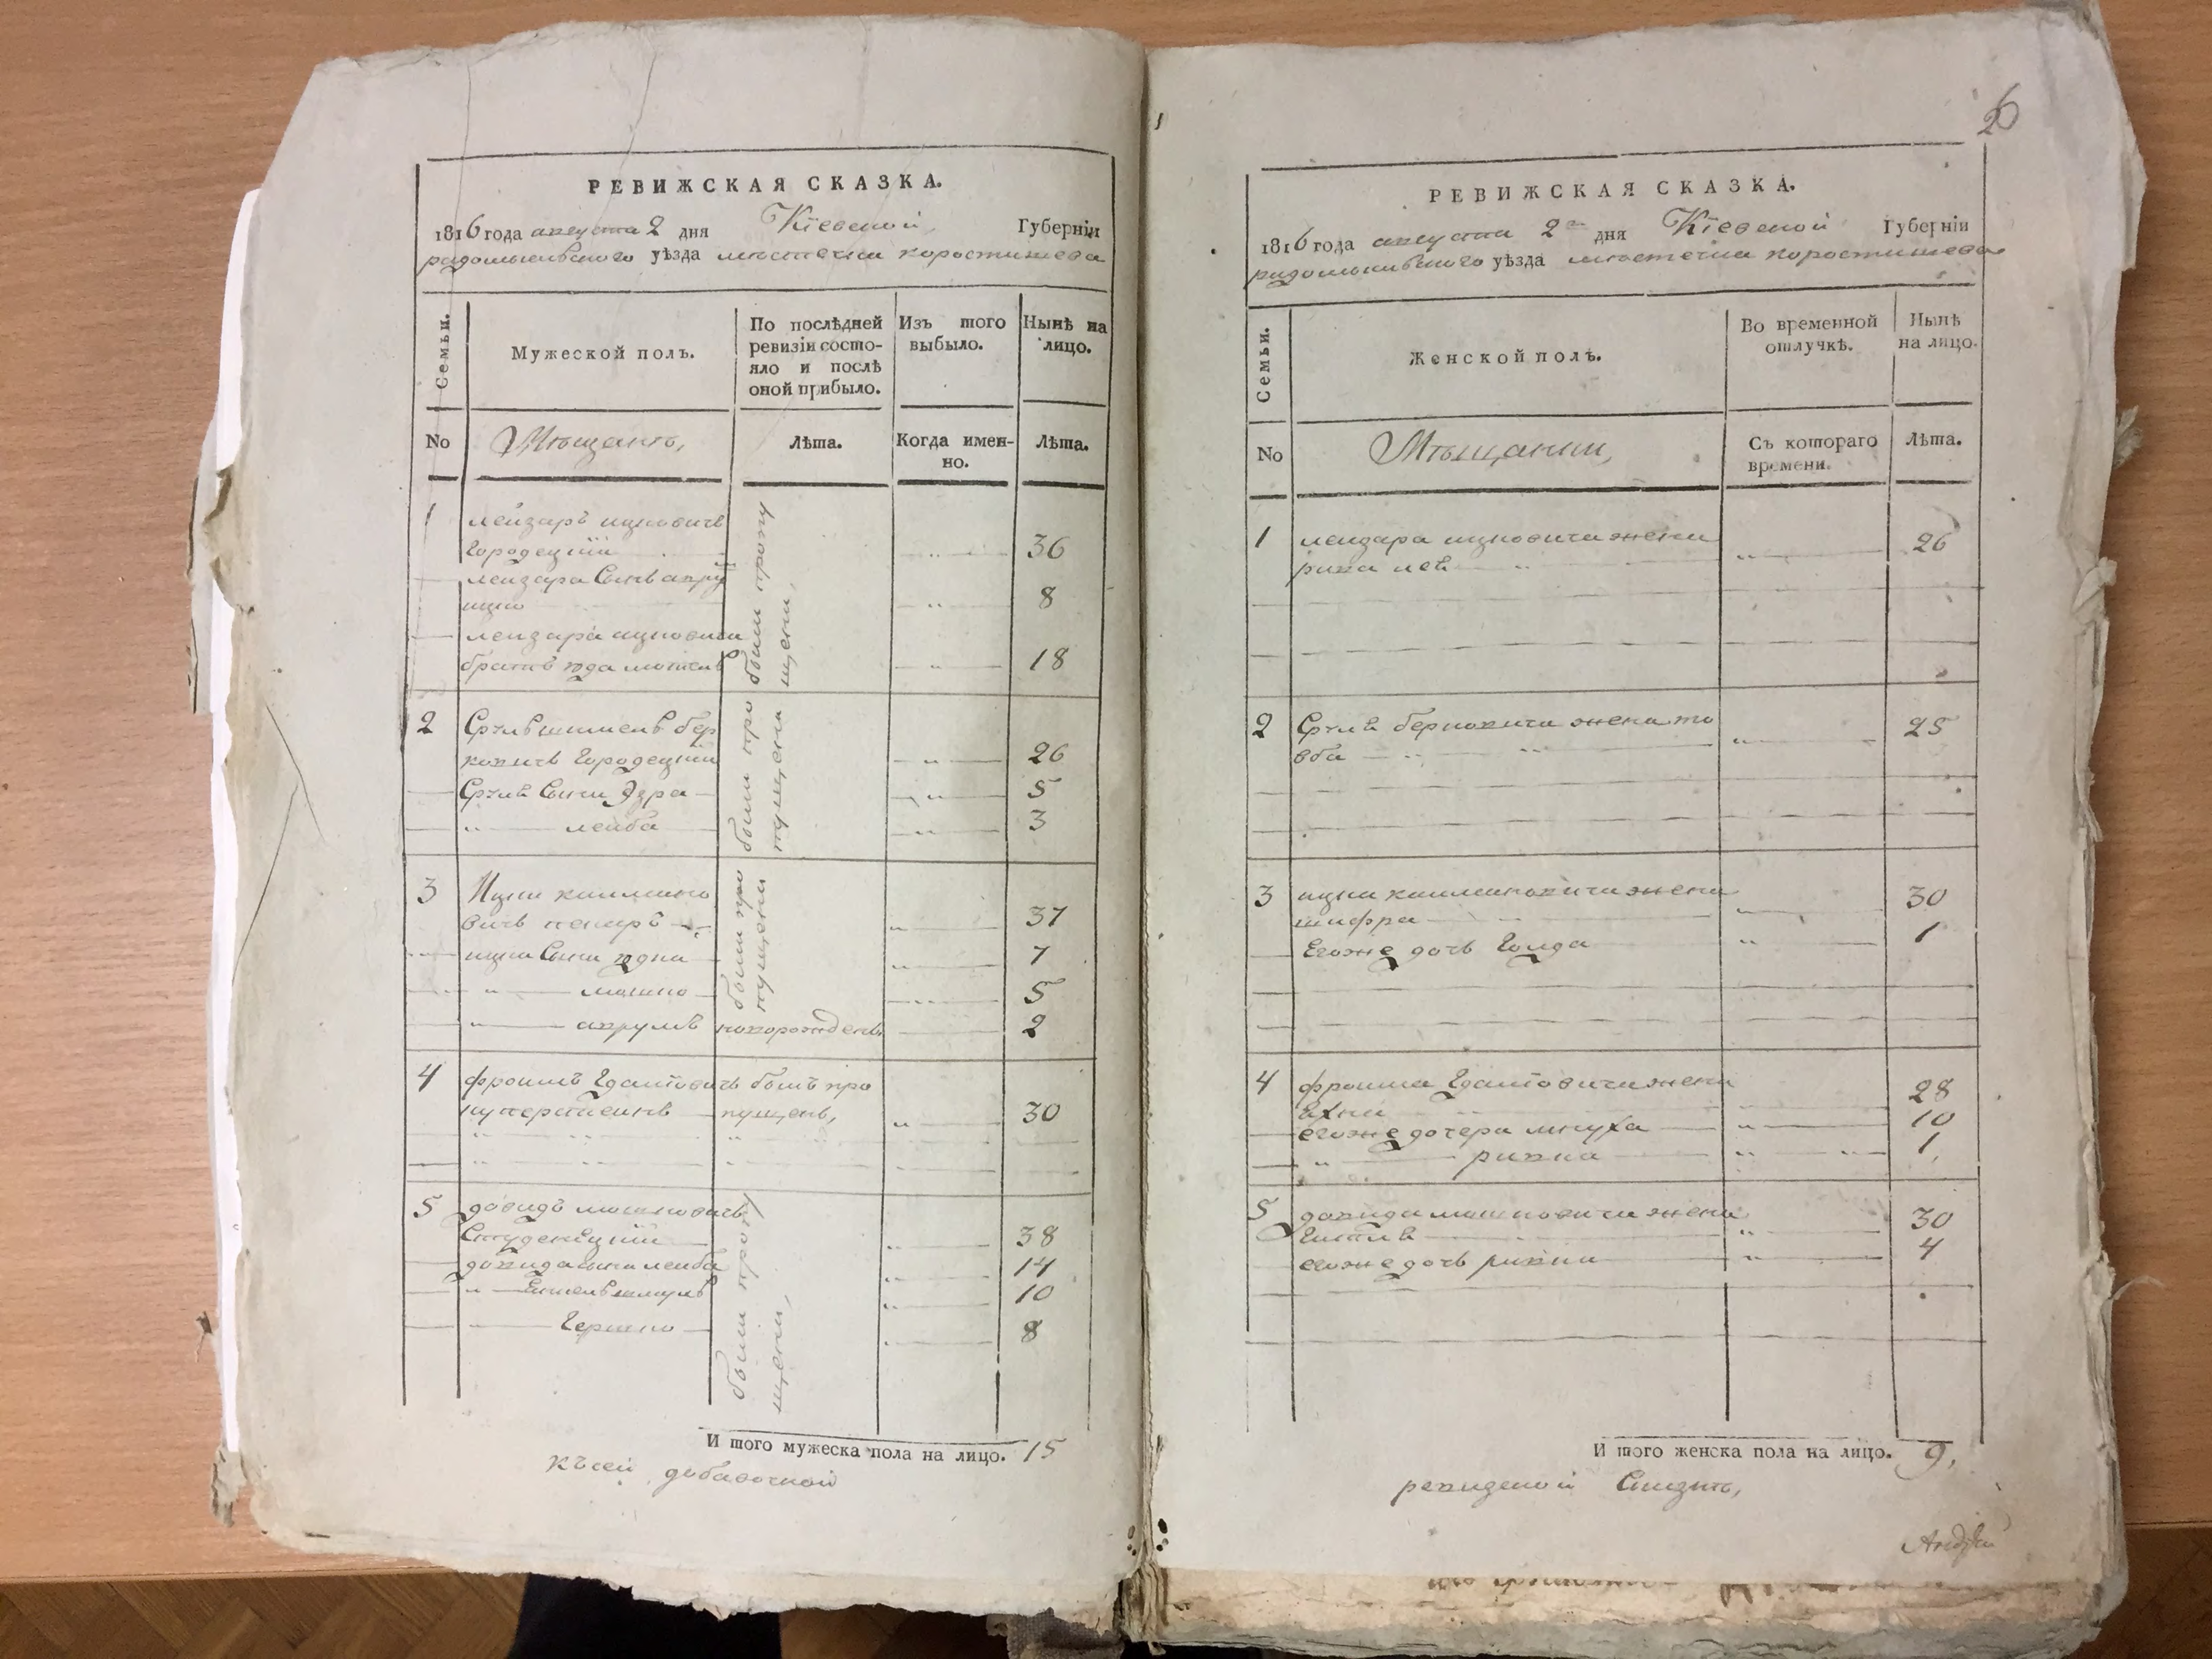 РЕВИЖСКАЯ СКАЗКА.
1816 года августа 2 дня Кіевской Губерніи
радомысльского уѣзда мѣстечка коростишева
Семьи.
Мужеской полъ.
По послѣдней
ревизіи состо-
яло и послѣ
оной прибыло.
Изъ того
выбыло.
Нынѣ на
лицо.
No
Мѣщанъ,
Лѣта.
Когда имен-
но.
Лѣта.
1 лейзаръ ицковичъ
городецкій 36
лейзара сынъ
ицко 8
лейзара ицковича
братъ юда 18
были пропу
щени,
2 Сруль бер
ковичъ городецкій 26
Сруля сыни Эзра 5
" лейба 3
были про
пущени
3 Ицка калмано
вичъ 37
ицка сыни 7
" мошко 5
" аврумъ новорожденъ 2
были про
пущени
4 фроимъ былъ про
пущенъ, 30
5 довидъ мошковичъ
Студенецкій 38
довида сыни лейба 14
" 10
Гершко 8
были пропу
щени,
И того мужеска пола на лицо. 15
къ сей добавочной
26
РЕВИЖСКАЯ СКАЗКА.
1816 года августа 2 дня Кіевской Губерніи
радомысльского уѣзда мѣстечка коростишева
Семьи.
Женской полъ.
Во временной
отлучкѣ.
Нынѣ
на лицо.
No
Мѣщанки,
Съ котораго
времени.
Лѣта.
1 лейзара ицковича жена
26
2 Сруля берковича жена то
вба 25
3 ицка калмановича жена
шифра 30
Егоже дочь Голда 1
4 фроима жена
28
егоже дочера мнуха 10
" ривка 1
5 довида мошковича жена
Гитля 30
егоже дочь ривка 4
И того женска пола на лицо. 9,
ревизской Сказкѣ,